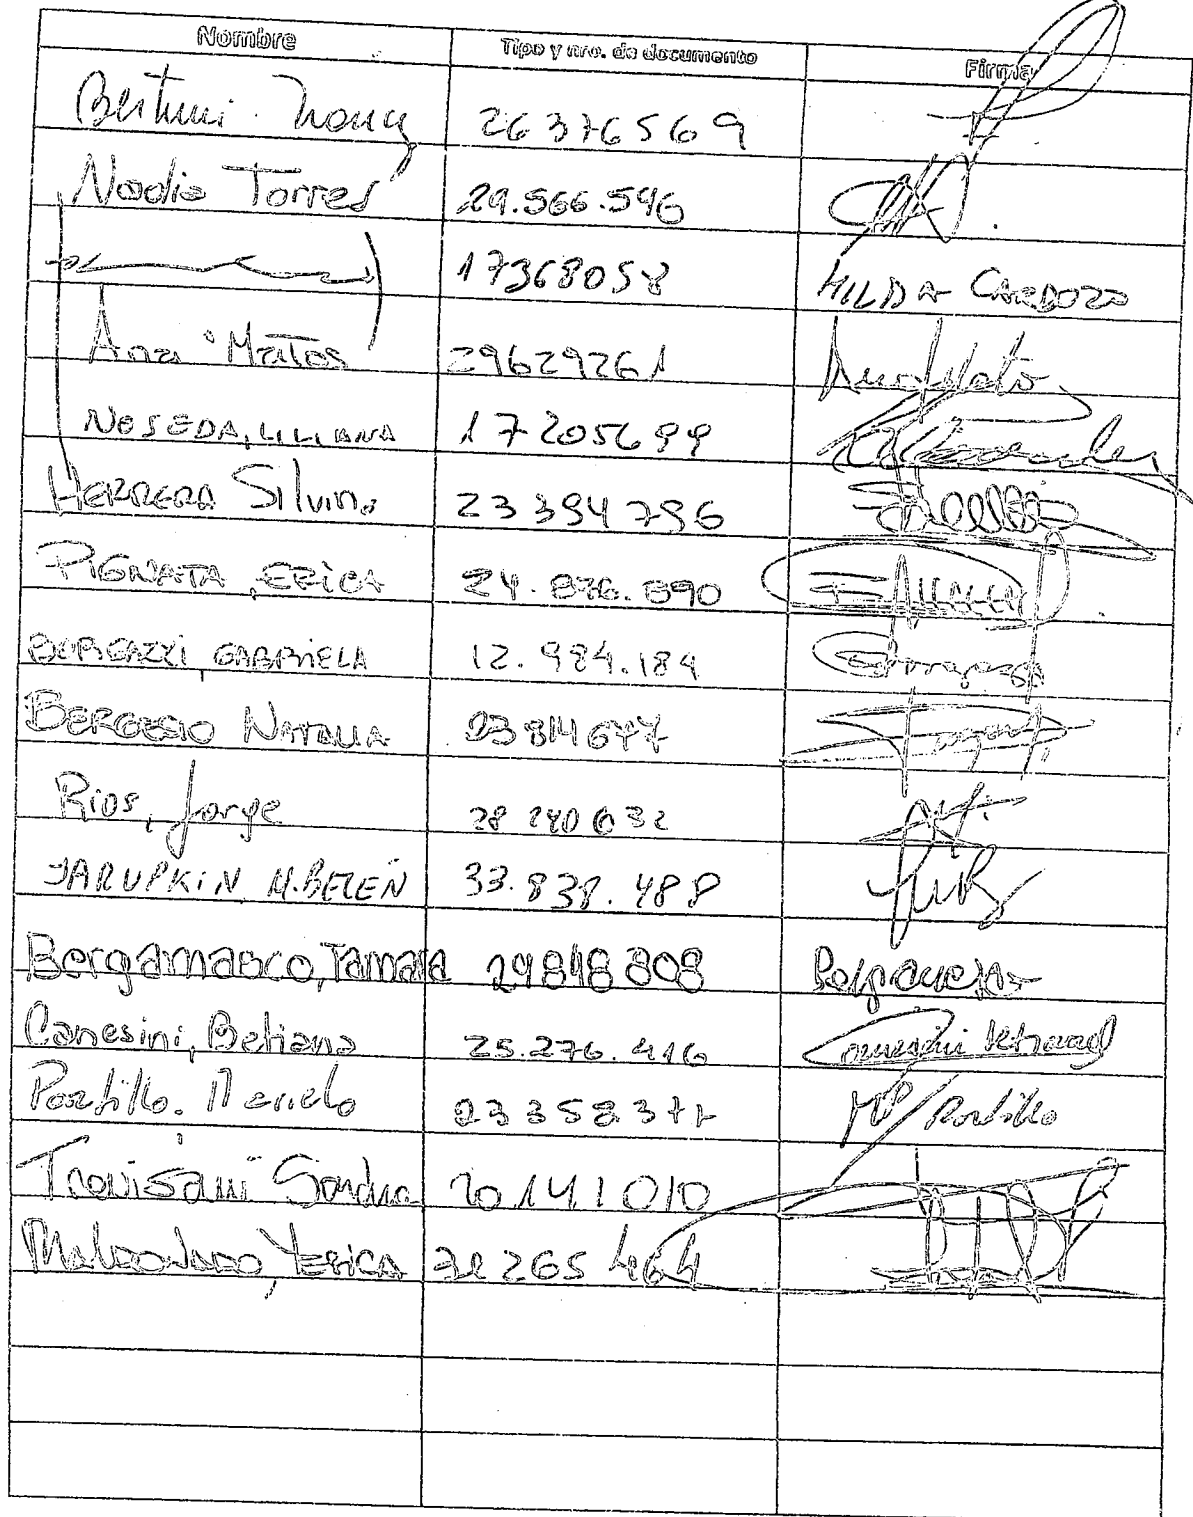 Nombre Tipo y nro. de documento Firma
26376569
Nadia Torres 29.566.596
17368058 HILDA CARDOZO
Ana Matos 29629261
NOSEDA, LILIANA 17205699
HERRERA Silvina 23394796
PIGNATA, ERICA 24.876.890
GABRIELA 12.984.184
BERGERO NATALIA 23814677
Rios, Jorge 28 240 632
JARUPKIN M.BELEN 33.838.488
Bergamasco, Tamara 29848808
Canesini, Betiana 25.276.416
Portillo. Mariela 23358377 Portillo
Trevisani Sandra 20141010
MALDONADO, YESICA 265 464